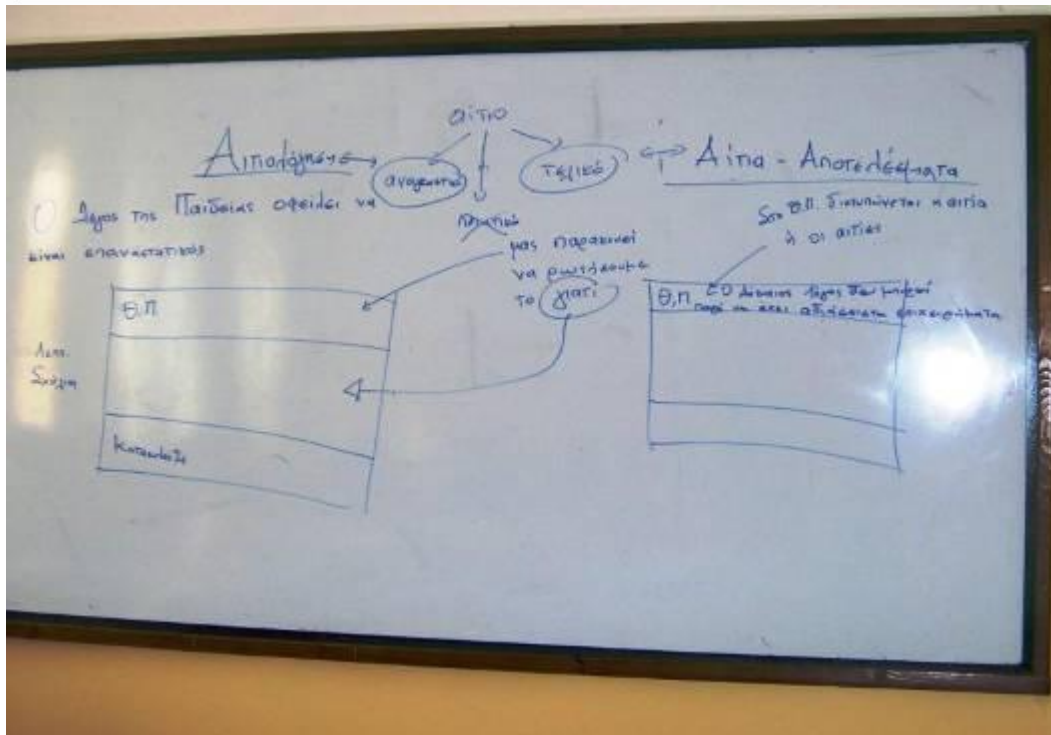 αίτιο
Αιτιολόγηση
αναγκαστικό
τελικό
Αίτια - Αποτελέσματα
Ο λόγος της Παιδείας οφείλει να
είναι επαναστατικός
μας παρακινεί
να ρωτήσουμε
το γιατί
Στη Θ.Π. διατυπώνεται η αιτία
ή οι αιτίες
Θ.Π
Λεπτ.
Σχόλια
Κατακλείδα
Θ.Π. Ο λόγος δεν μπορεί
παρά να έχει επιχειρήματα